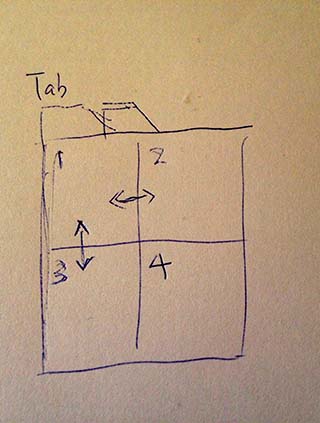 Tab
1 2
3 4